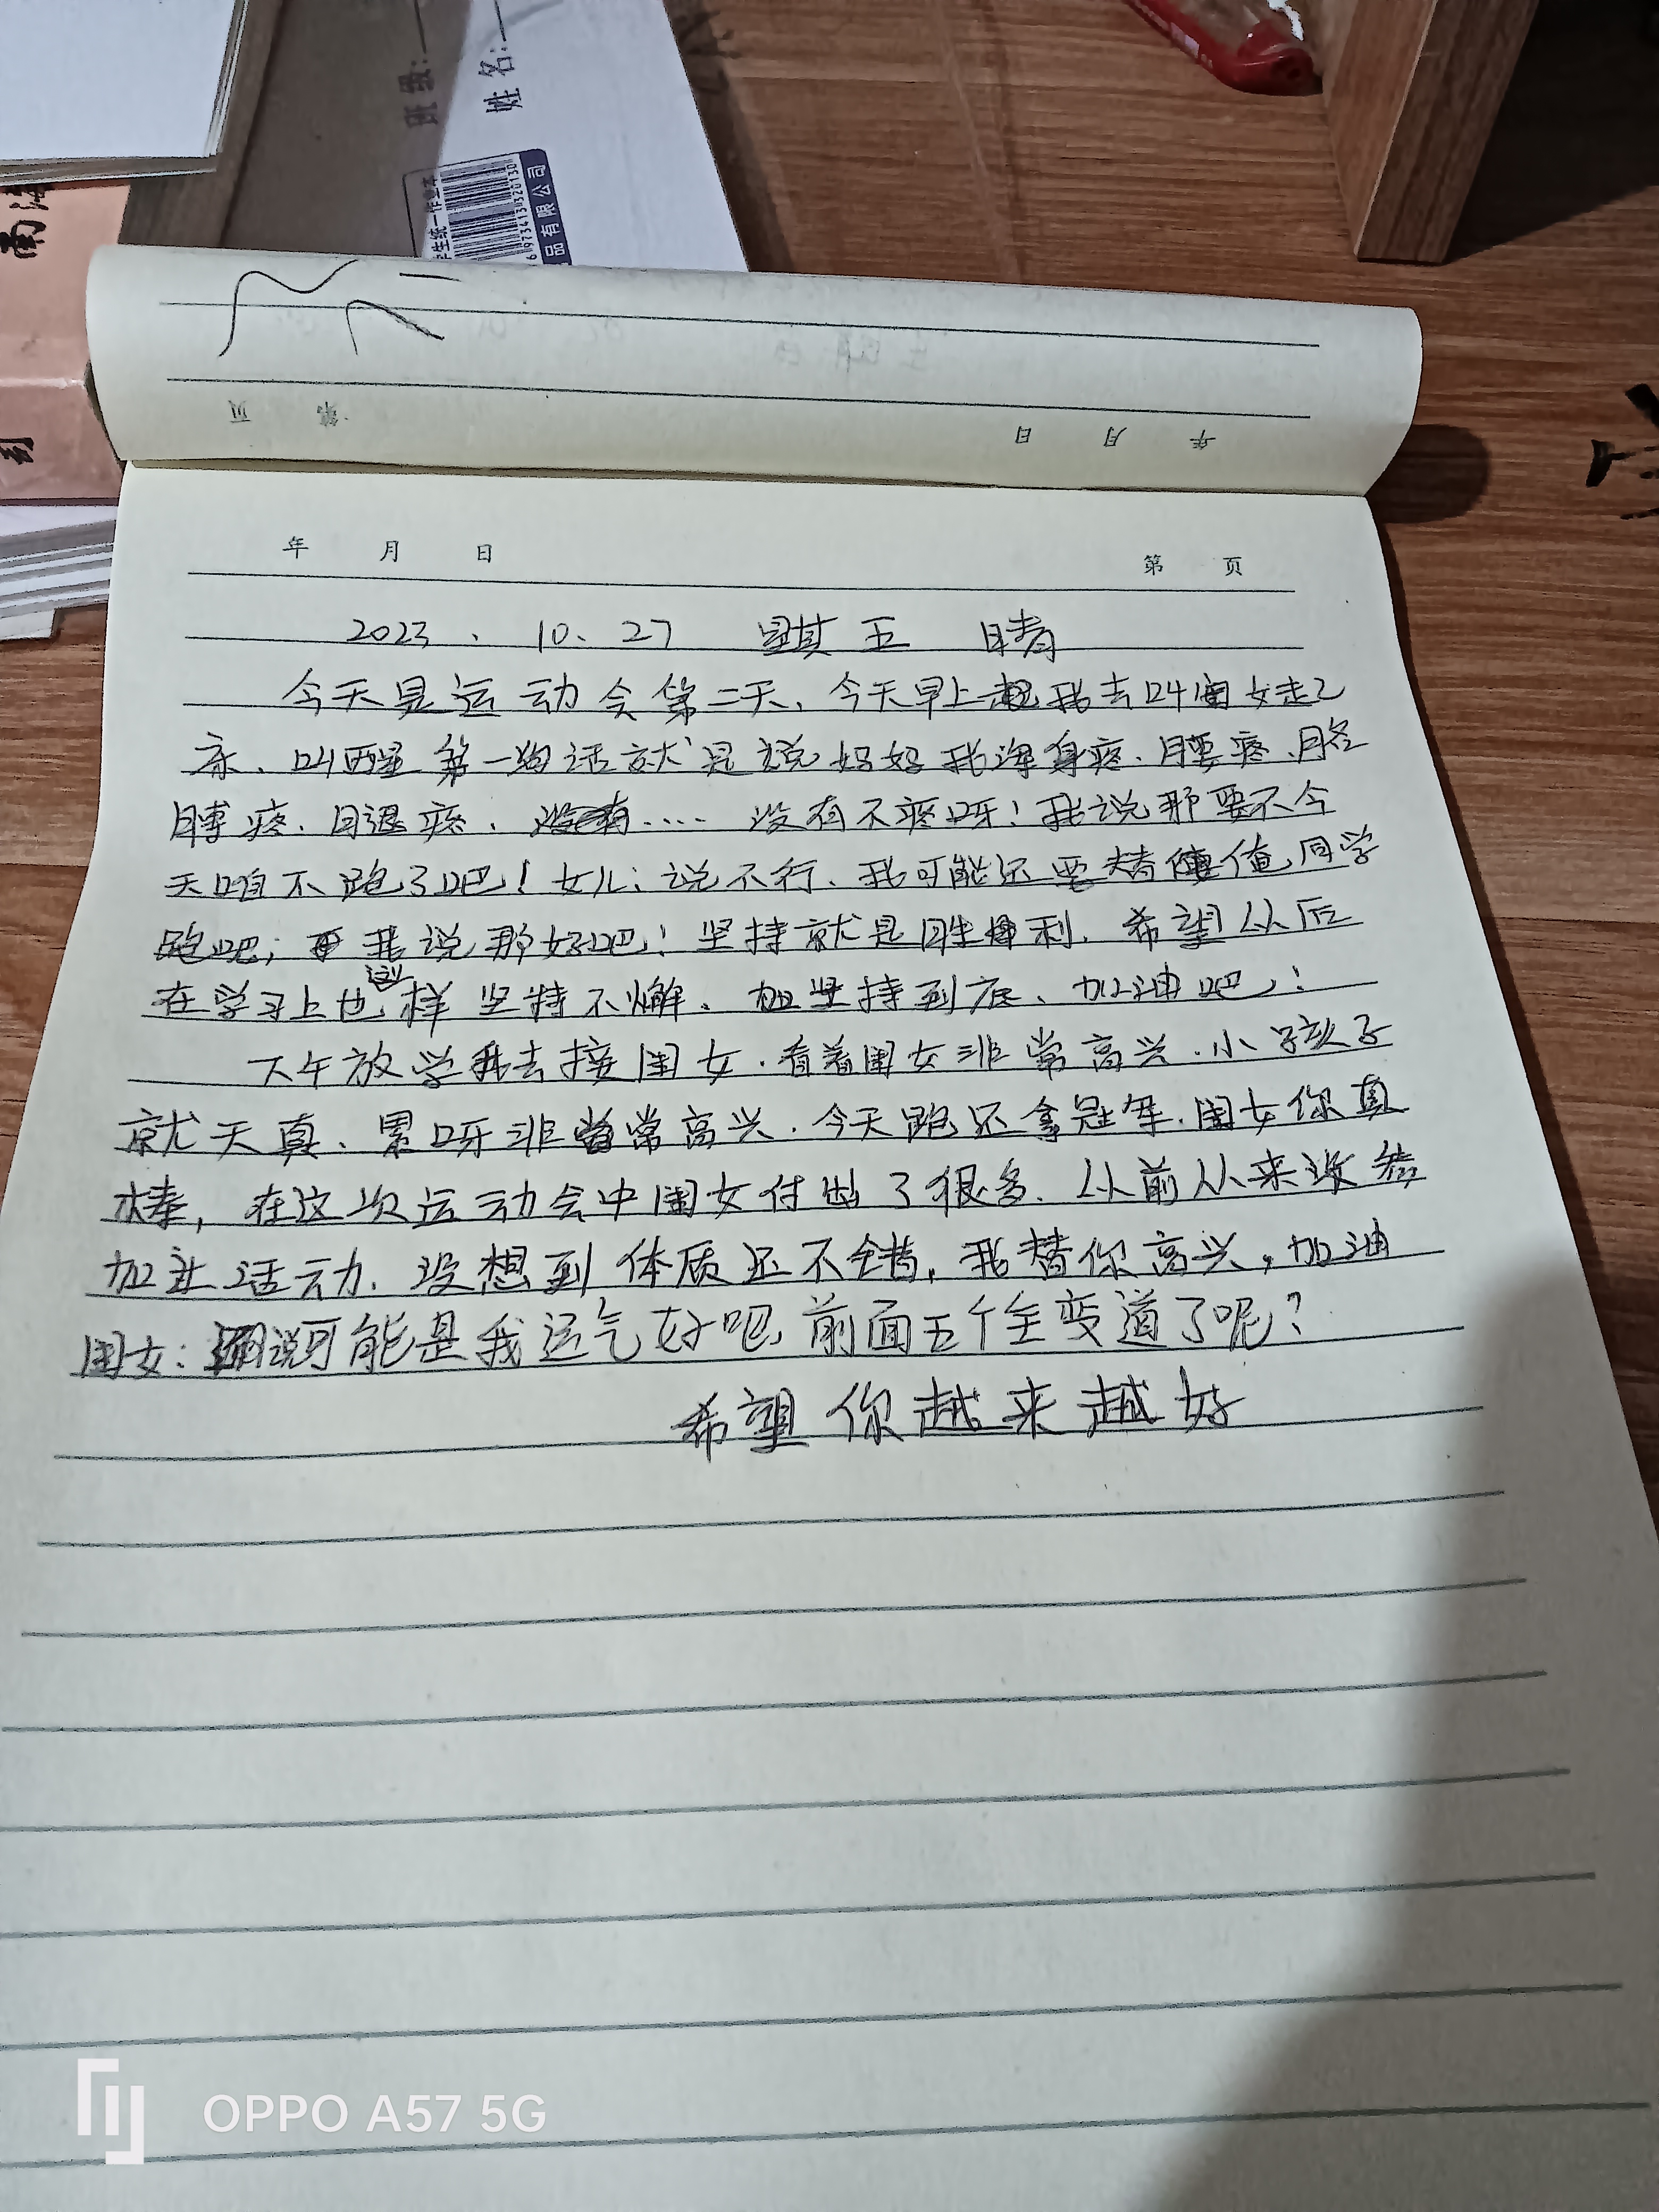 班级:
姓名:
学生统一作业本
6973413320130
品有限公司
南海
到
第 页
年 月 日
年 月 日 第 页
2023 、 10、27 星期五 晴
今天是运动会第二天、今天早上起我去叫闺女起
床、叫醒第一句话就是说妈妈我浑身疼、腰疼、胳
膊疼、腿疼、.... 没有不疼呀！我说那要不今
天咱不跑了吧！女儿：说不行、我可能还要替俺同学
跑吧；我说那好吧！坚持就是胜利、希望从后
在学习上也这样坚持不懈、坚持到底、加油吧！
下午放学我去接闺女、看着闺女非常高兴、小孩子
就天真、累呀非常高兴、今天跑还拿冠军、闺女你真
棒，在这次运动会中闺女付出了很多、从前从来没参
加过活动、没想到体质还不错，我替你高兴，加油
闺女：说可能是我运气好吧、前面五个全变道了呢？
希望你越来越好
OPPO A57 5G